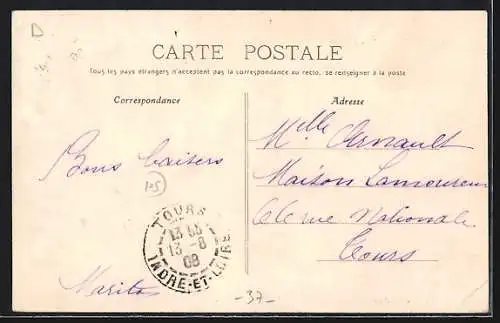 D
CARTE POSTALE
Tous les pays étrangers n'acceptent pas la correspondance au recto, se renseigner à la poste
Correspondance
Adresse
Mlle Arnault
Maison Lamoureux
rue Nationale
Tours
Bons baisers
105
TOURS
13 55
13 -8
08
INDRE-ET-LOIRE
-37-